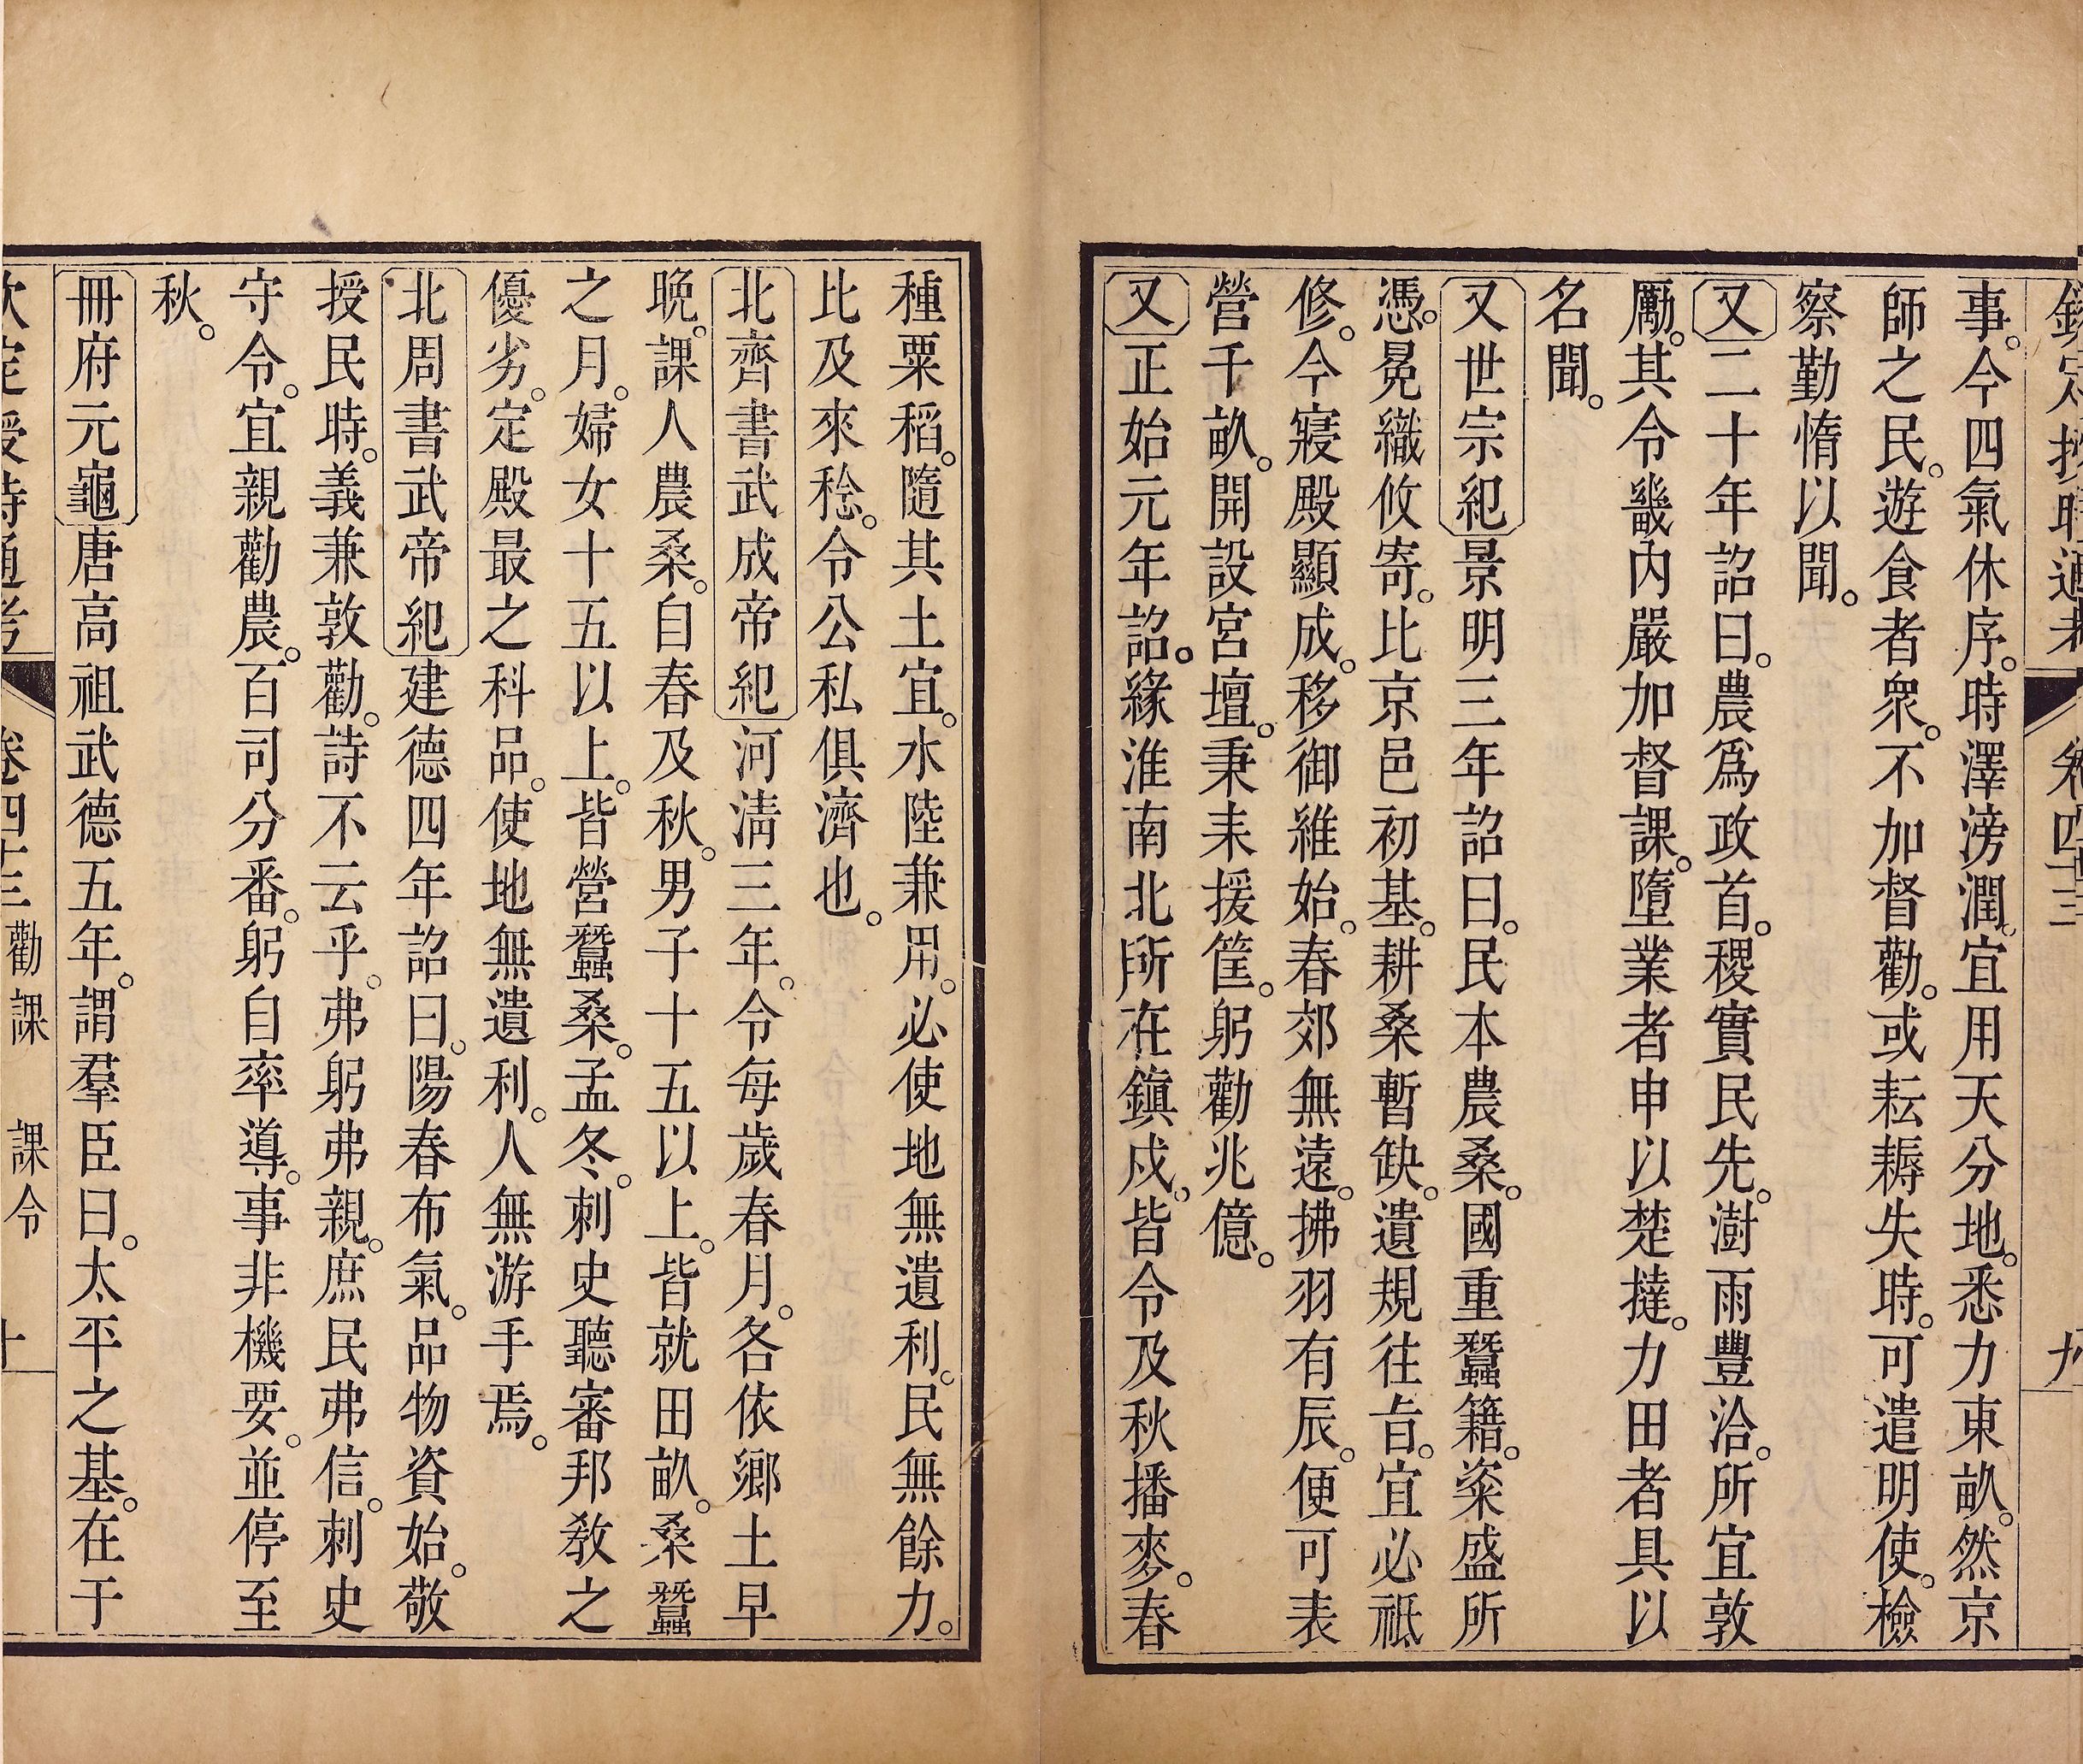 欽定授時通考 卷四十三 九
事。今四氣休序。時澤滂潤。宜用天分地。悉力東畝。然京
師之民。遊食者衆。不加督勸。或耘耨失時。可遣明使。檢
察勤惰以聞。
又二十年詔曰。農爲政首。稷實民先。澍雨豐洽。所宜敦
勵。其令畿內嚴加督課。墮業者申以楚撻。力田者具以
名聞。
又世宗紀景明三年詔曰。民本農桑。國重蠶籍。粢盛所
憑。冕織攸寄。比京邑初基。耕桑暫缺。遺規往旨。宜必祗
修。今寢殿顯成。移御維始。春郊無遠。拂羽有辰。便可表
營千畝。開設宮壇。秉耒援筐。躬勸兆億。
又正始元年詔。緣淮南北所在鎮戍。皆令及秋播麥。春
種粟稻。隨其土宜。水陸兼用。必使地無遺利。民無餘力。
比及來稔。令公私俱濟也。
北齊書武成帝紀河淸三年。令每歲春月。各依鄉土早
晩。課人農桑。自春及秋。男子十五以上。皆就田畝。桑蠶
之月。婦女十五以上。皆營蠶桑。孟冬。刺史聽審邦敎之
優劣。定殿最之科品。使地無遺利。人無游手焉。
北周書武帝紀建德四年詔曰。陽春布氣。品物資始。敬
授民時。義兼敦勸。詩不云乎。弗躬弗親。庶民弗信。刺史
守令。宜親勸農。百司分番。躬自率導。事非機要。並停至
秋。
冊府元龜唐高祖武德五年。謂羣臣曰。太平之基。在于
欽定授時通考 卷四十三 勸課 課令 十